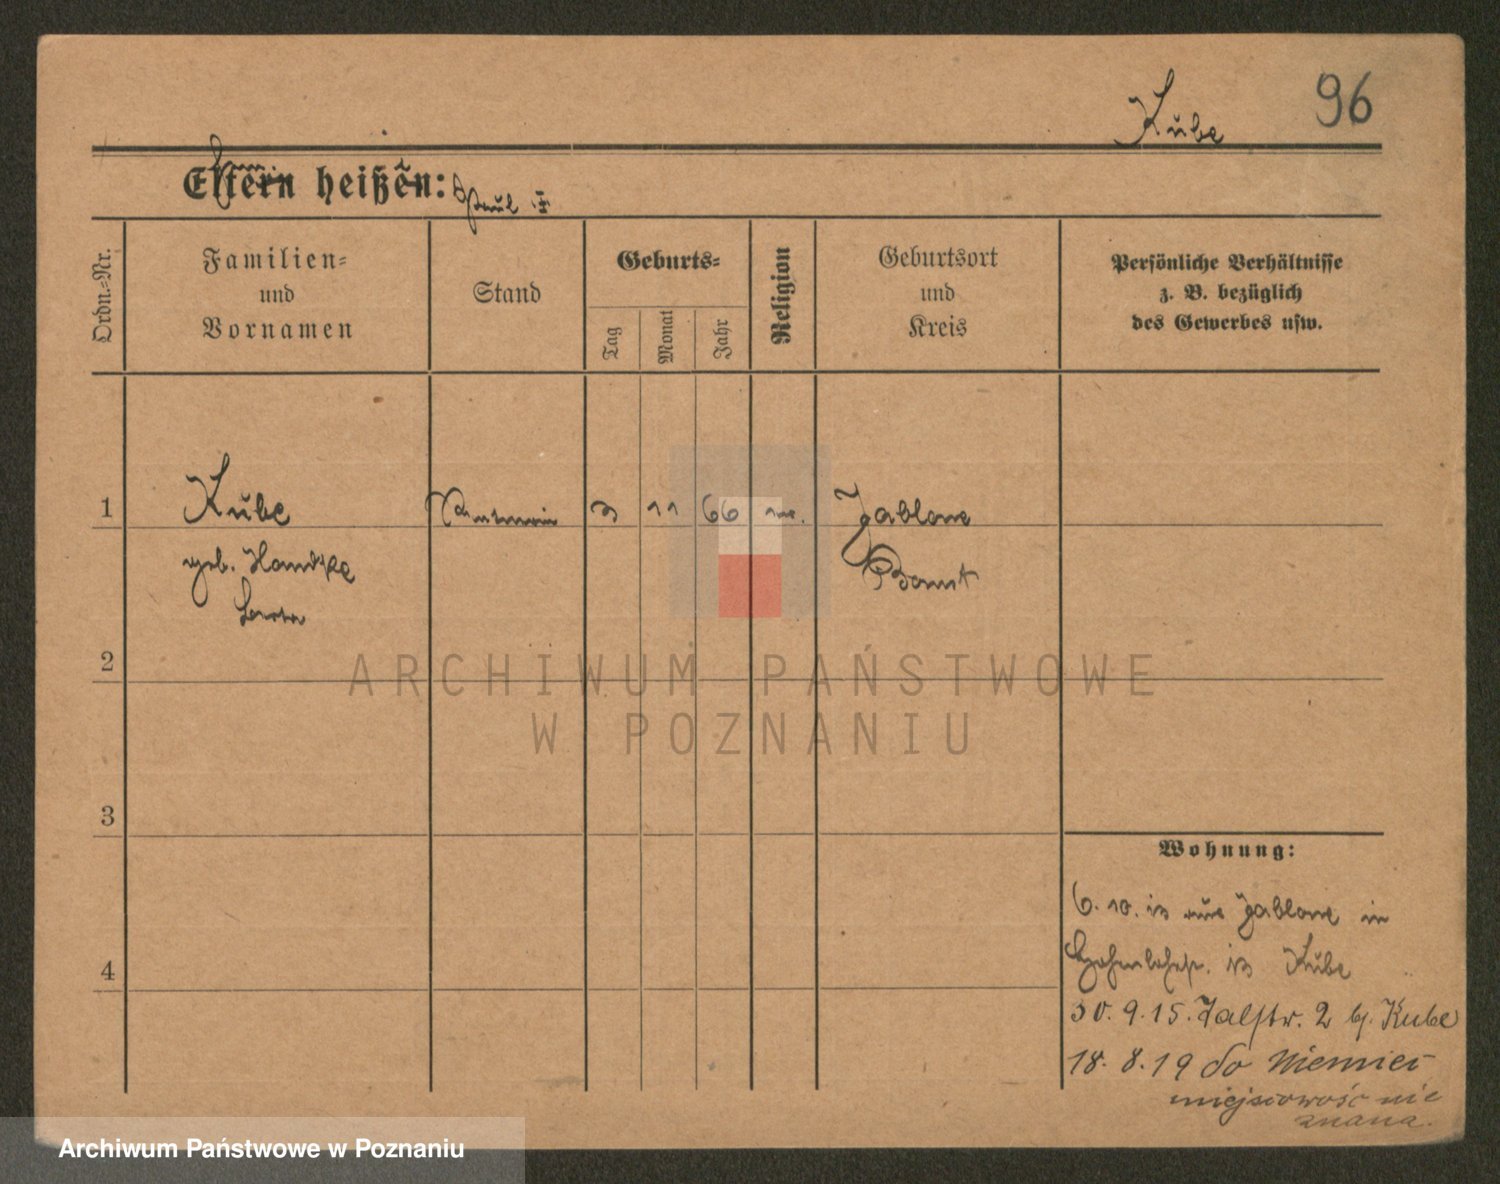 Kube 96
Eltern heißen:
Ordn.-Nr.
Familien- und Vornamen
Stand
Geburts-
Tag
Monat
Jahr
Religion
Geburtsort und Kreis
Persönliche Verhältnisse
z. B. bezüglich
des Gewerbes usw.
1 Kube 3 11 66 Jablone
geb. Bomst
2
ARCHIWUM PAŃSTWOWE
W POZNANIU
3
Wohnung:
6. 10. 13 aus Jablone in
4 13 Kube
30. 9. 15. Talstr. 2 b. Kube
18. 8. 19 do Niemiec
miejscowość nie
znana.
Archiwum Państwowe w Poznaniu